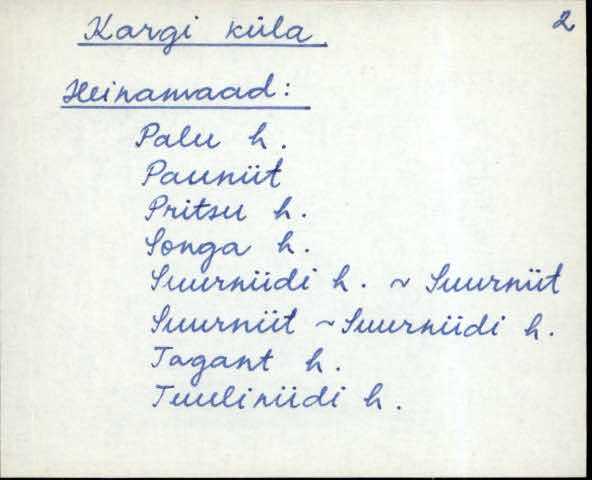 Kargi küla.
2
Heinamaad:
Palu h.
Pauniit
Pritsu h.
Songa h.
Suurniidi h. ~ Suurniit
Suurniit ~ Suurniidi h.
Tagant h.
Tuuliniidi h.